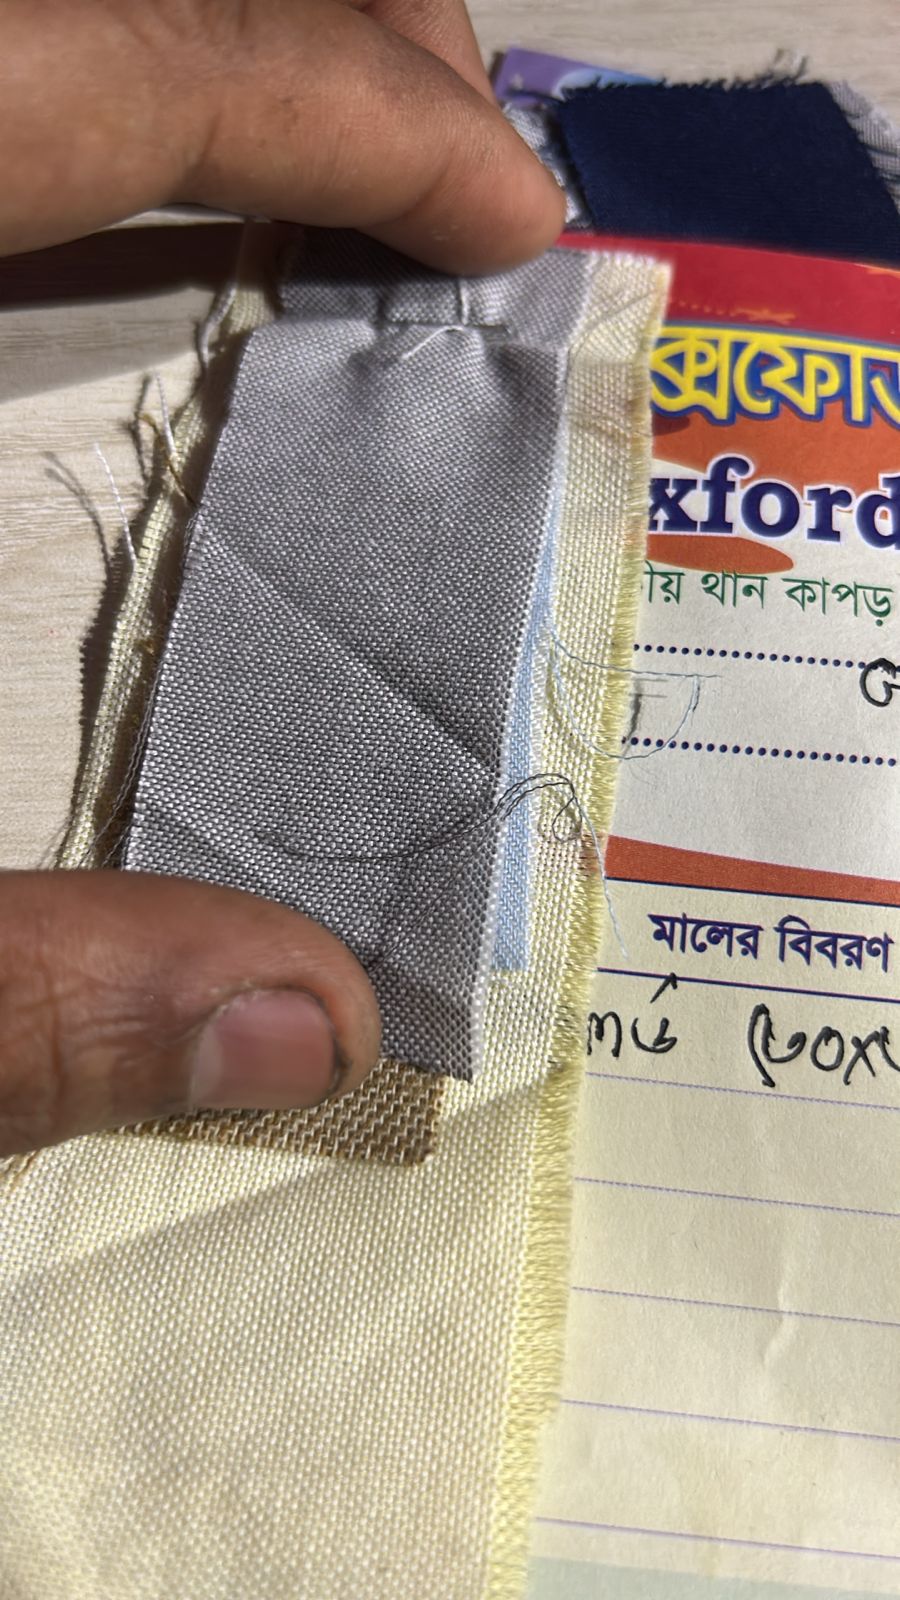 ক্সফোর্
xford
ীয় থান কাপড়
মালের বিবরণ
র্ড (৩০x